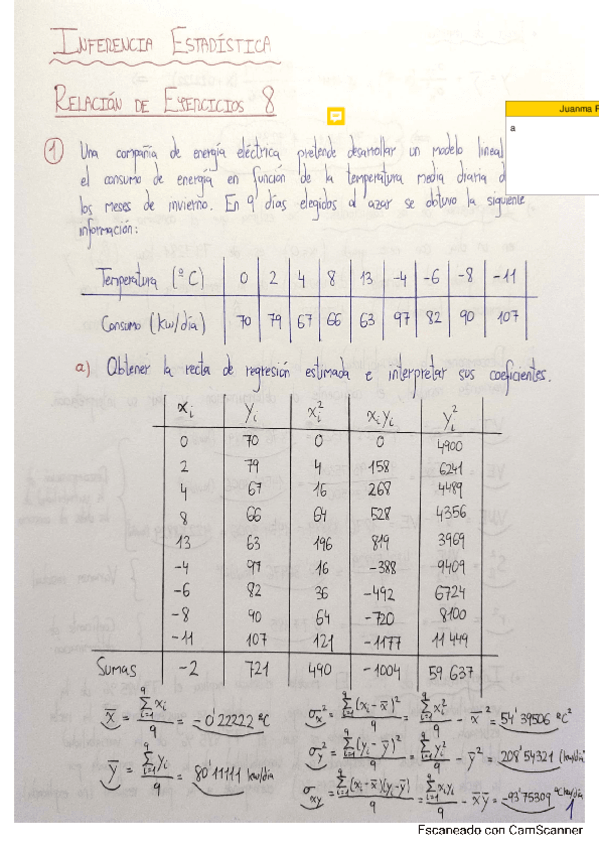 INFERENCIA ESTADÍSTICA
RELACIÓN DE EJERCICIOS 8
Juanma P
a
1 Una compañía de energía eléctrica pretende desarrollar un modelo lineal
el consumo de energía en función de la temperatura media diaria d
los meses de invierno. En 9 días elegidos al azar se obtuvo la siguiente
información:
Temperatura (ºC) 0 2 4 8 13 -4 -6 -8 -11
Consumo (kw/día) 70 79 67 66 63 97 82 90 107
a) Obtener la recta de regresión estimada e interpretar sus coeficientes.
xᵢ yᵢ xᵢ² xᵢyᵢ yᵢ²
0 70 0 0 4900
2 79 4 158 6241
4 67 16 268 4489
8 66 64 528 4356
13 63 196 819 3969
-4 97 16 -388 9409
-6 82 36 -492 6724
-8 90 64 -720 8100
-11 107 121 -1177 11449
Sumas -2 721 490 -1004 59637
x̄ = Σᵢ₌₁⁹ xᵢ / 9 = -0'22222 ºC
σₓ² = Σᵢ₌₁⁹ (xᵢ - x̄)² / 9 = Σᵢ₌₁⁹ xᵢ² / 9 - x̄² = 54'39506 ºC²
ȳ = Σᵢ₌₁⁹ yᵢ / 9 = 80'11111 kw/día
σᵧ² = Σᵢ₌₁⁹ (yᵢ - ȳ)² / 9 = Σᵢ₌₁⁹ yᵢ² / 9 - ȳ² = 208'54321 (kw/día)
σₓᵧ = Σᵢ₌₁⁹ (xᵢ - x̄)(yᵢ - ȳ) / 9 = Σᵢ₌₁⁹ xᵢyᵢ / 9 - x̄ȳ = -93'75309 ºC kw/día
1
Escaneado con CamScanner